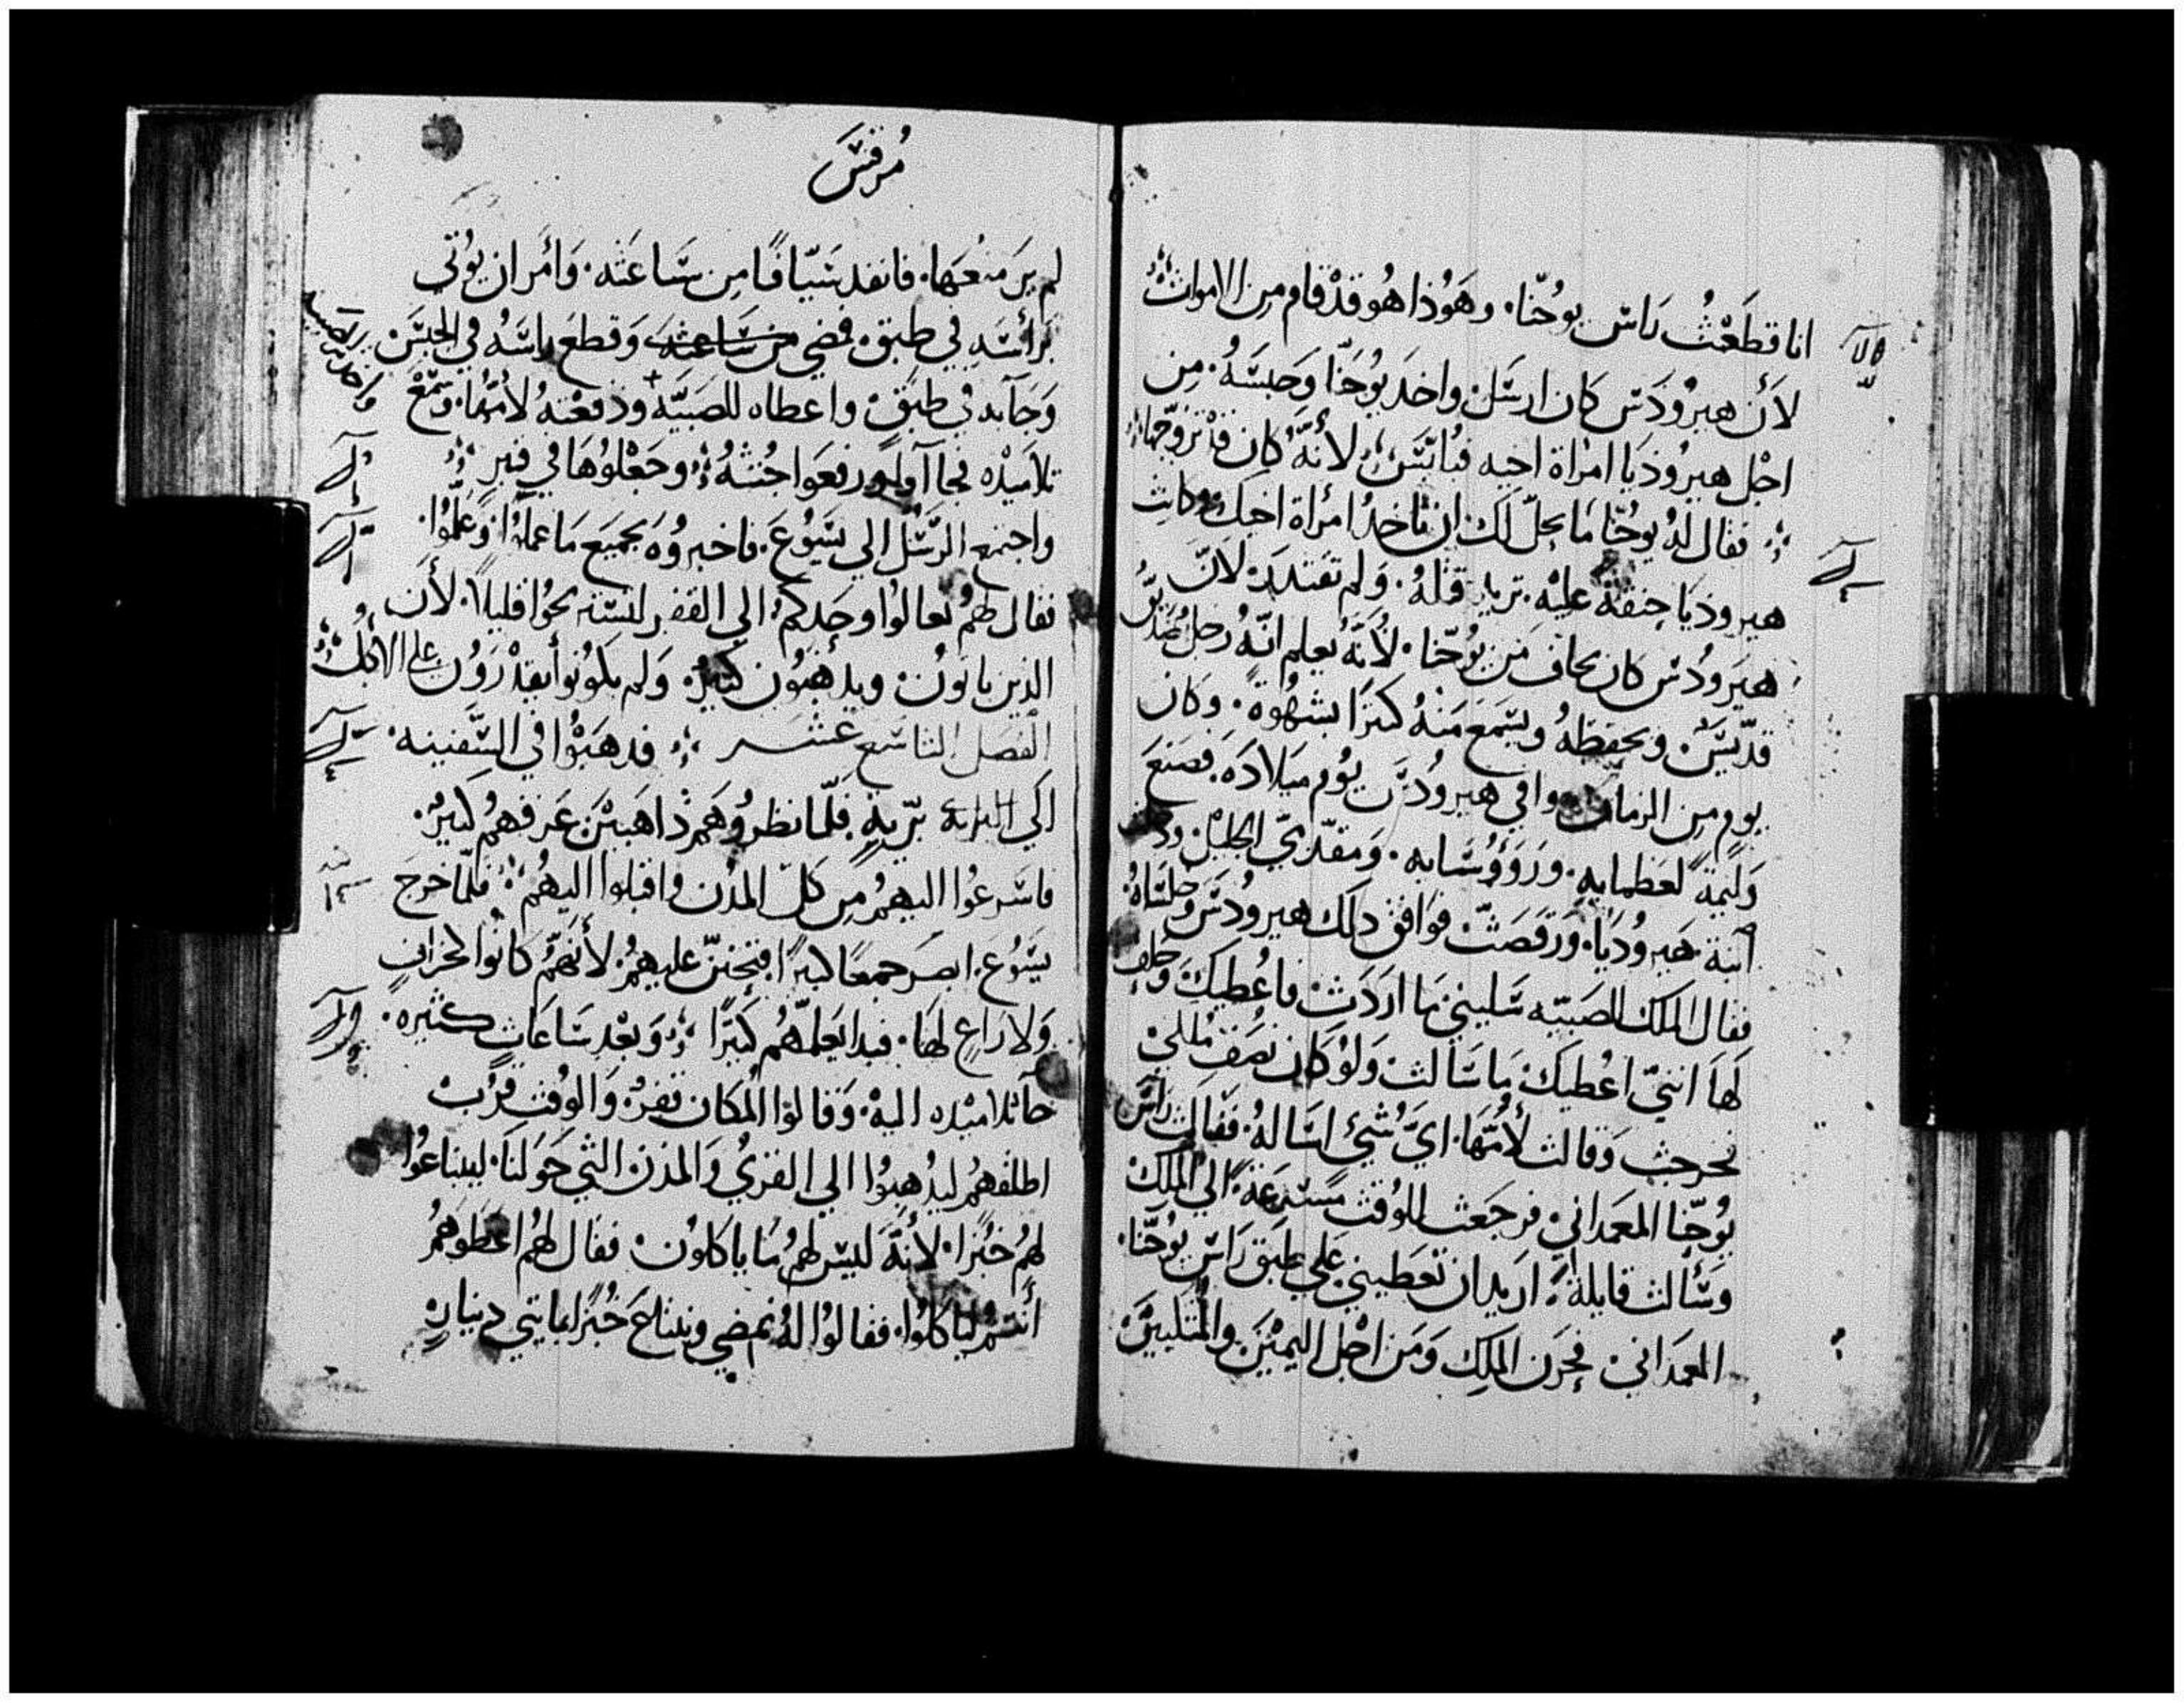 انا قطَعْتُ رَاسَ يوُحَنّا. وهَوُذا هُو قدْ قام مِن الاموات
لأن هيرُودَسَ كان ارسَلَ واخدَ يوُحَنّا وَحَبسَهُ. مِن
اجْل هيرُودَيَا امرَاة اخيه فيُلبَّسَ لأنَّهُ كان قدْ تزوَّجَهَا
فقال لهُ يوُحَنّا مَا يحلّ لكَ ان تاخدُ امرأة اخيكَ وكانت
هيرودَيَا حِنقة عليْهِ. تريدِ قتْلهُ. وَلم تقتدَرَ لانّ
هيَرودُسَ كان يخاف مَن يوُحَنّا. لأنَّهُ يعلم انّهُ رَجل صَديّقُ
قدّيسَ. ويحفِظهُ ويسَمَعَ مَنهُ كثيرًا بشهْوُة. وَكان
يوم مِن الزمان وافي هيرودُسَ يوُم ميَلادَه. فصَنعَ
وَليمَة لعَظمايه. ورَوؤسَايه. وَمقدّميّ الجليْل ودخلت
ابنة هَيرودُيَا. ورَقصَتْ فوَافق دلك هيرودُسَ وَجلسَاهُ
فقال الملك للصَبيّه سَليني مَا ارَدَتْ فاعُطيكَ وَحَلف
لهَا اننيّ اعُطيكَ مَا سَالت وَلوُ كَان نصَف مُلكيْ
فخرجت وَقالت لأمُّهَا. ايَّ شيْ اسَالهُ. فقالت رَاسَ
يوُحَنّا المعمَدانيْ فرجَعت للوُقت مسَرعَة الي الملِكْ
وسَألت قايلة اريدان تعَطيني عَلي طبَق رَاسَ يوُحَنّا.
المعمَداني. فحزَن الملِك وَمَن اجْل اليمْيَن والمُتكييَّن
مُرقسَ
لم يَرَ منعَهَا. فانفد سَيّافًا مِن سَاعَته. وَأمَر ان يوُتي
برَأسَهِ في طبَق. فمضي من سَاعَته وَقطعَ رَاسَهُ في الحبسَ.
وَجَآبه في طبَق. واعطاه للصَبَيَّه ودَفعْتهُ لامُهَّا. وَسَمْعَ
تلاميَدْه فجاآوا ورفعَوا جُثتهُ وجَعْلوُهَا في قبر
واجتمع الرسُّل الي يسَوُعَ. فاخبروُهَ بجميَع مَا عملوُا وَعَلمَّوُا.
فقال لهمُ تعالوُا وحدكمُ الي القفر لتسَتريحوُا قليلاً. لأن
الدين ياتوُن. ويدهبَوُن كثيَرٌ. وَلم يكوُنوُا يقدْرَوُن علي الاكل
الفصَل التاسَع عشر فدهَبوْا في السَّفينه.
الي البرية برّيةٍ. فلمّا نظروُهَم ذاهَبيْن عَرفهمُ كثيرٌ.
فاسَرعوُا اليهمُ مِن كلّ المدُن واقبلوا اليهُم فلمّا خرجَ
يسَوُعَ. ابصَرَ جمعًا كثيرًا فتحننّ عليهمُ. لأنهَّمُ كانوُا كخرافٍ
وَلا رَاعٍ لهَا. فبدا يعَلمّهُم كثيَرًا وَبعْد سَاعَاتٍ كثيره.
جآ تلاميْده اليهْ. وَقالوُا المُكان قفرٌ. وَالوُقت قرُبْ
اطلقهمُ ليدُهبوُا الي القريُ وَالمدُن التي حَوُلنَا. ليبتاعوُا
لهمُ خبُزًا. لأنهُّ ليسَ لهمُ مَا ياكلوُن. فقال لهمُ اعَطوُهَمُ
أنتمُ ليَاكلوُا. فقالوُا لهُ نمضي ونبتاعَ خبُزًا بمايتي دينارٍ